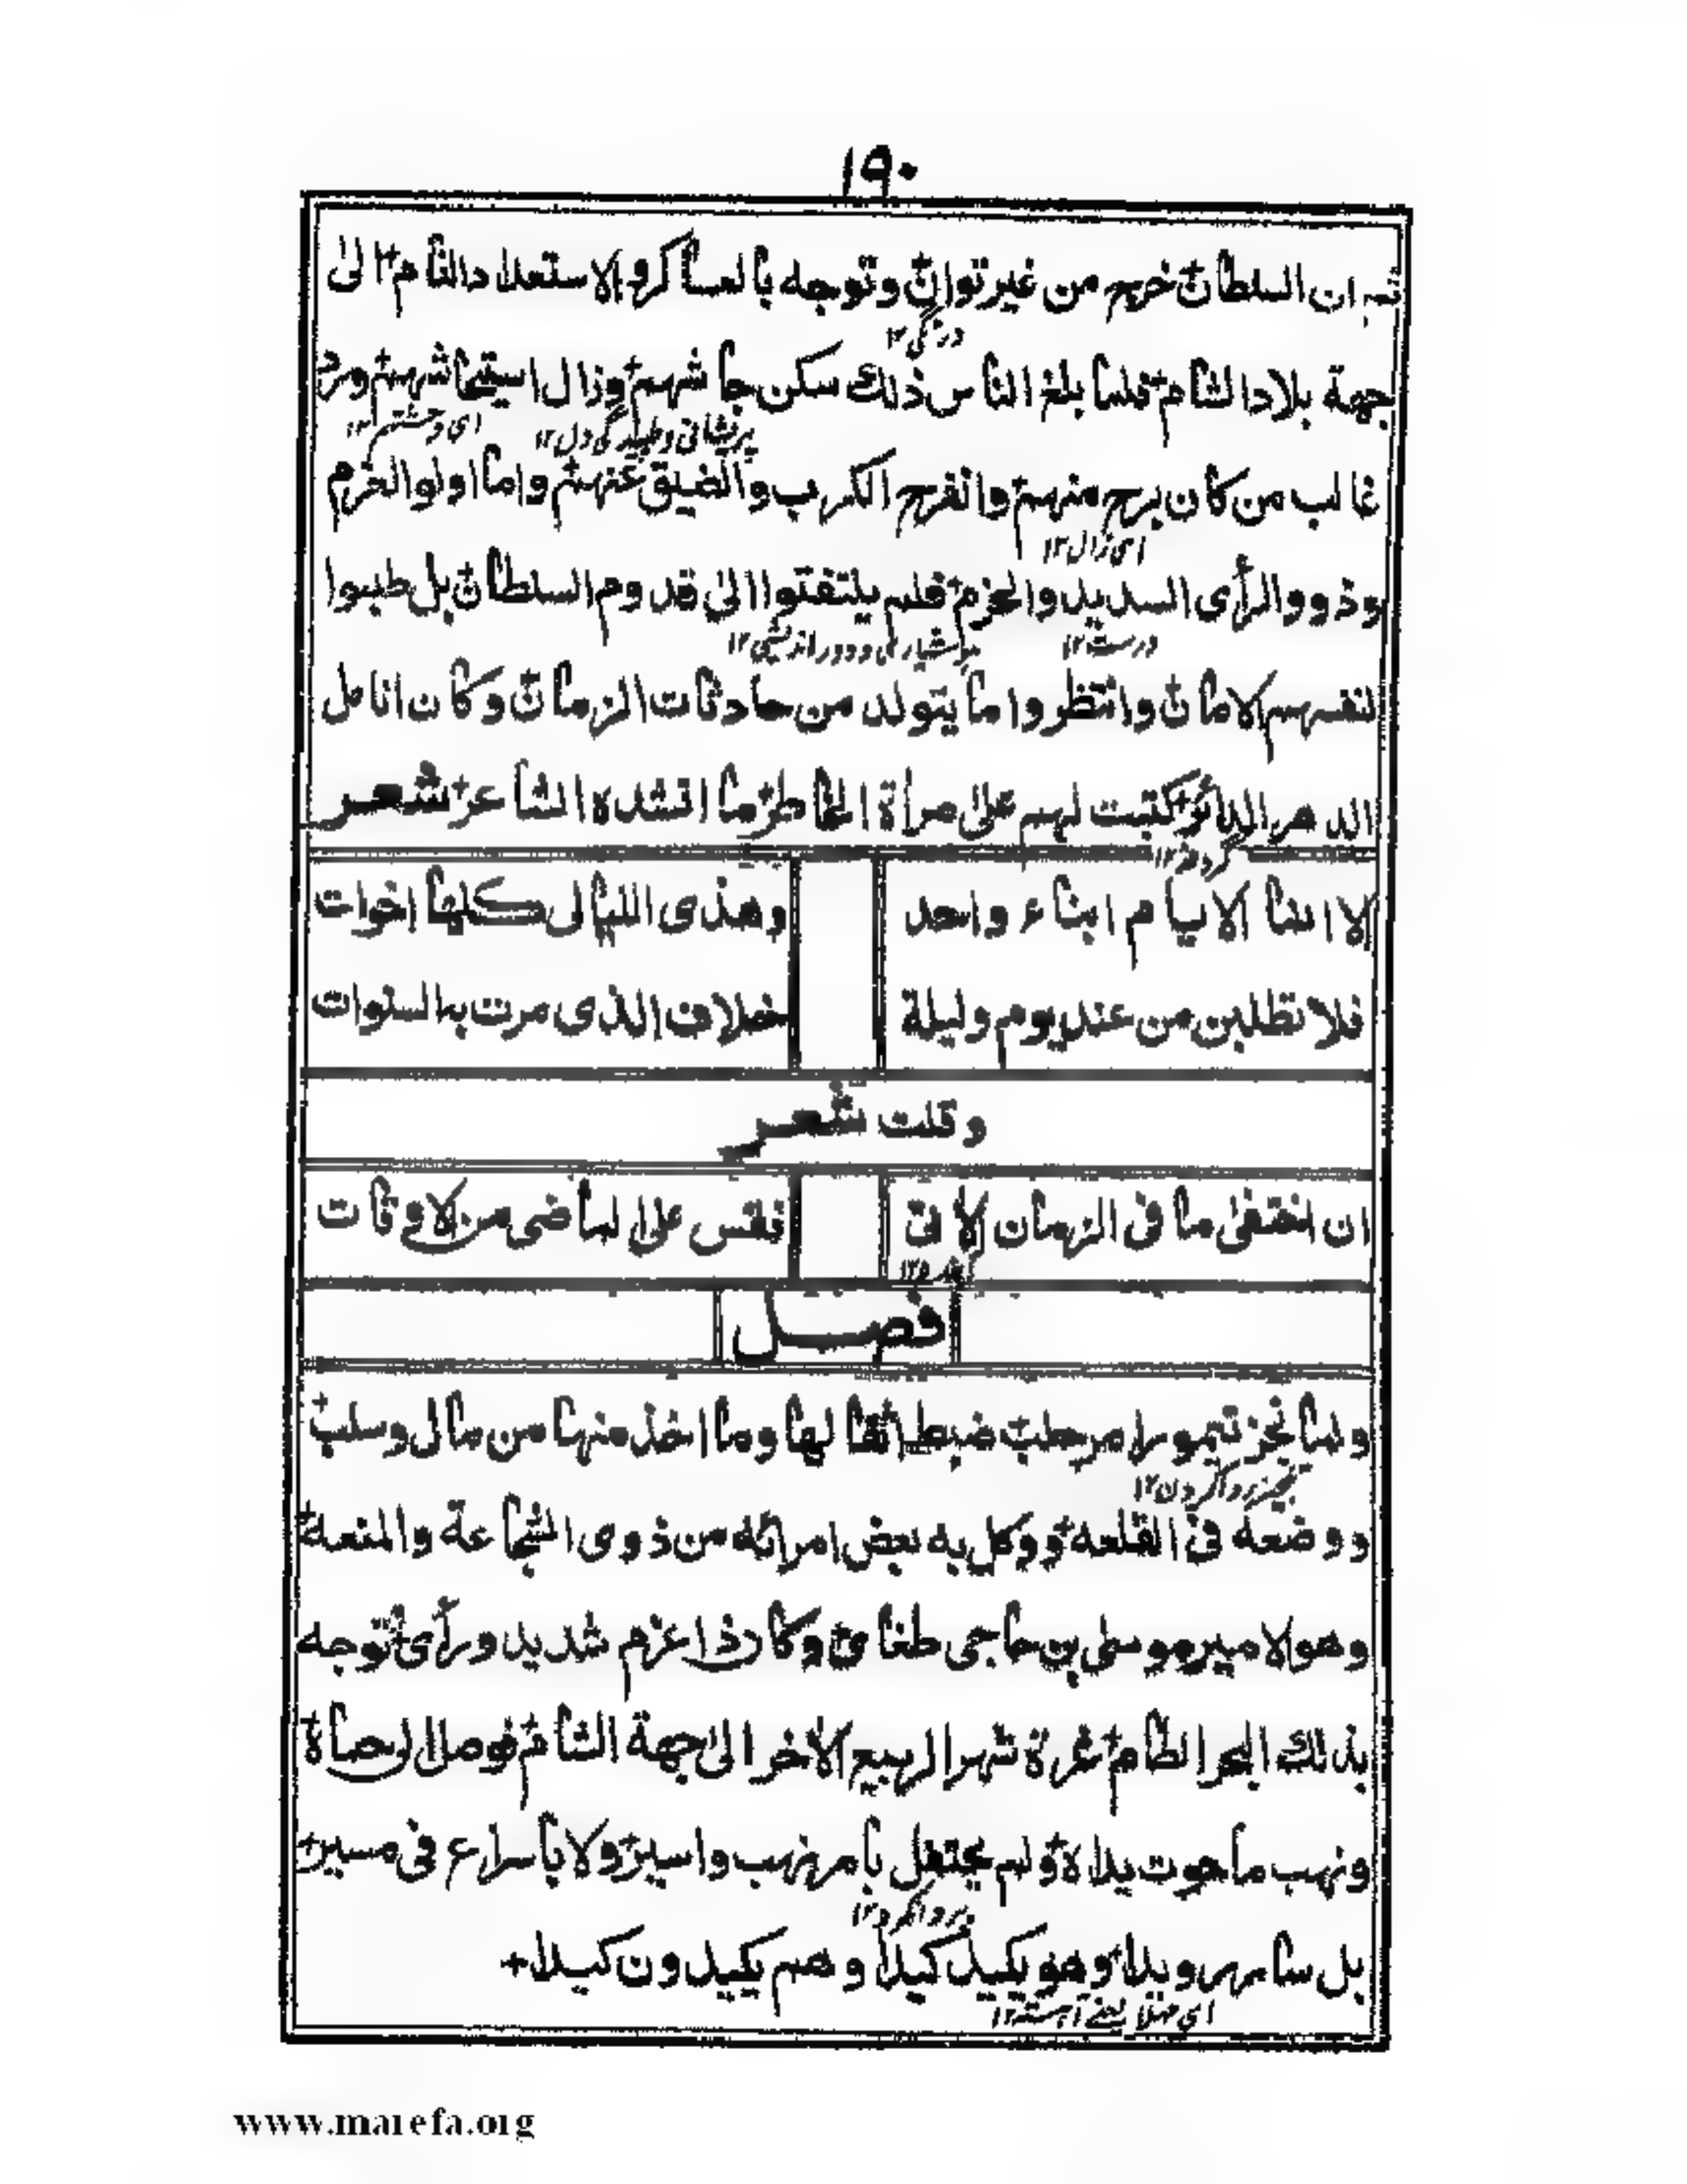 ١٩٠
ثم ان السلطان خرج من غير توان وتوجه بالعساكر والاستعداد التام الى
درنگی ١٢
جهة بلاد الشام فلما بلغ الناس ذلك سكن جاشهم وزال استيحاشهم ورد
پریشانی وطپیدگی دل ١٢ ای وحشتهم ١٢
غالب من كان برح منهم وانفرج الكرب والضيق عنهم واما اولو العزم
ای زال ١٢
وذوو الرأى السديد والحزم فلم يلتفتوا الى قدوم السلطان بل طلبوا
درست ١٢ هوشیاری ودور اندیشی ١٢
لنفسهم الامان وانتظروا ما يتولد من حادثات الزمان وكان انامل
الدهر الدائر كتبت لهم على مرأة الخاطر ما انشده الشاعر شعر
گردنده ١٢
الا انما الايام ابناء واحد
وهذى الليالى كلها اخوات
فلا تطلبن من عند يوم وليلة
خلاف الذى مرت به السنوات
وقلت شعر
ان اختفى ما فى الزمان الاتى
فقس على الماضى من الاوقات
فصل
ولما نجز تيمور امر حلب ضبط اثقالها وما اخذ منها من مال وسلب
ووضعه فى القلعه ووكل به بعض امرائه من ذوى الشجاعة والمنعه
وهو الامير موسى بن حاجى طغاى وكان ذا عزم شديد ورأى توجه
بذلك البحر الطام غرة شهر الربيع الاخر الى جهة الشام فوصل الى حماة
ونهب ما حوت يداه ولم يحتفل بامر نهب واسير ولا باسراع فى مسير
پروا نکرد ١٢
بل سار رويدا وهو يكيد كيدا وهم يكيدون كيدا
ای مهلا یعنے آهسته ١٢
www.marefa.org